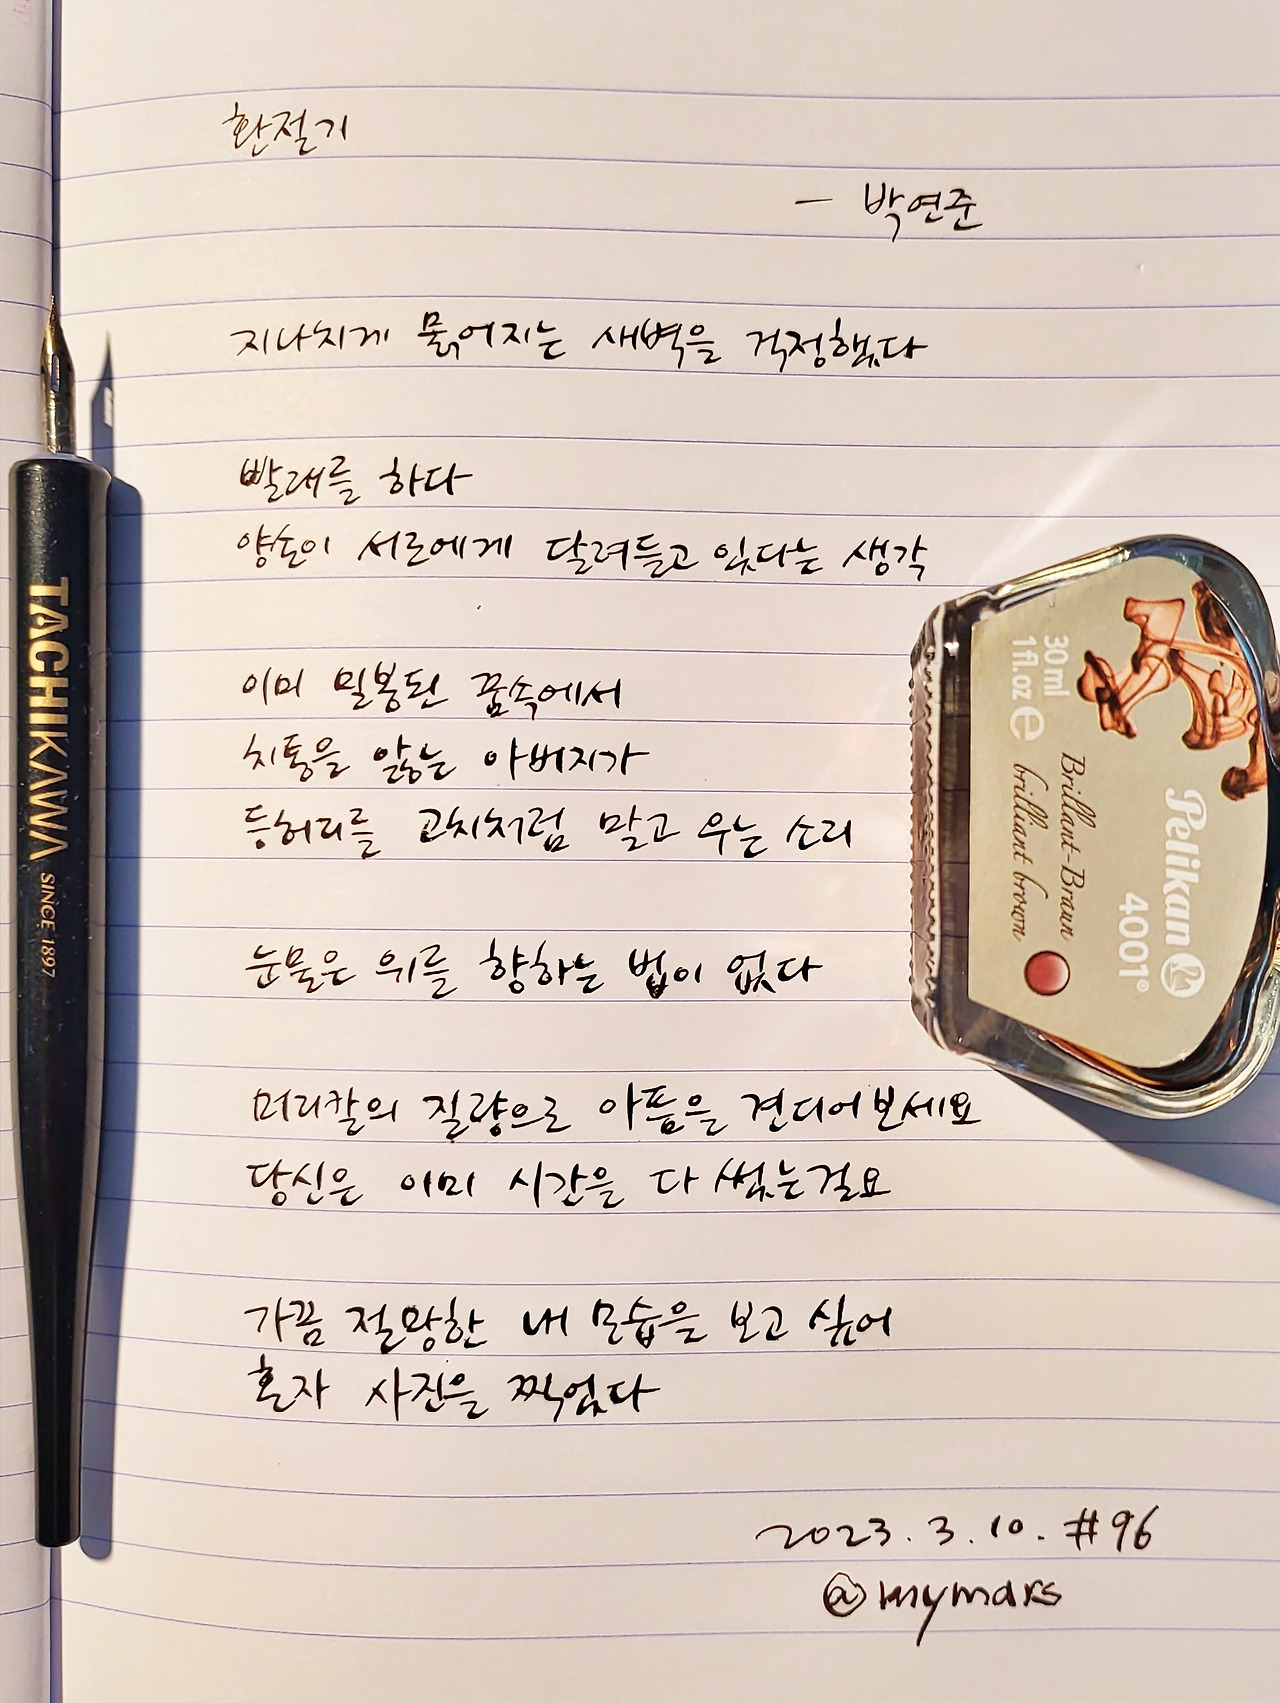 환절기
- 박연준
지나치게 묽어지는 새벽을 걱정했다
빨래를 하다
양손이 서로에게 달려들고 있다는 생각
이미 밀봉된 꿈속에서
치통을 앓는 아버지가
등허리를 고치처럼 말고 우는 소리
눈물은 위를 향하는 법이 없다
머리칼의 질량으로 아픔을 견디어보세요
당신은 이미 시간을 다 썼는걸요
가끔 절망한 내 모습을 보고 싶어
혼자 사진을 찍었다
2023.3.10. #96
@mymars
TACHIKAWA SINCE 1897
Pelikan
4001®
Brillant-Braun
brilliant brown
30 ml
1 fl.oz e